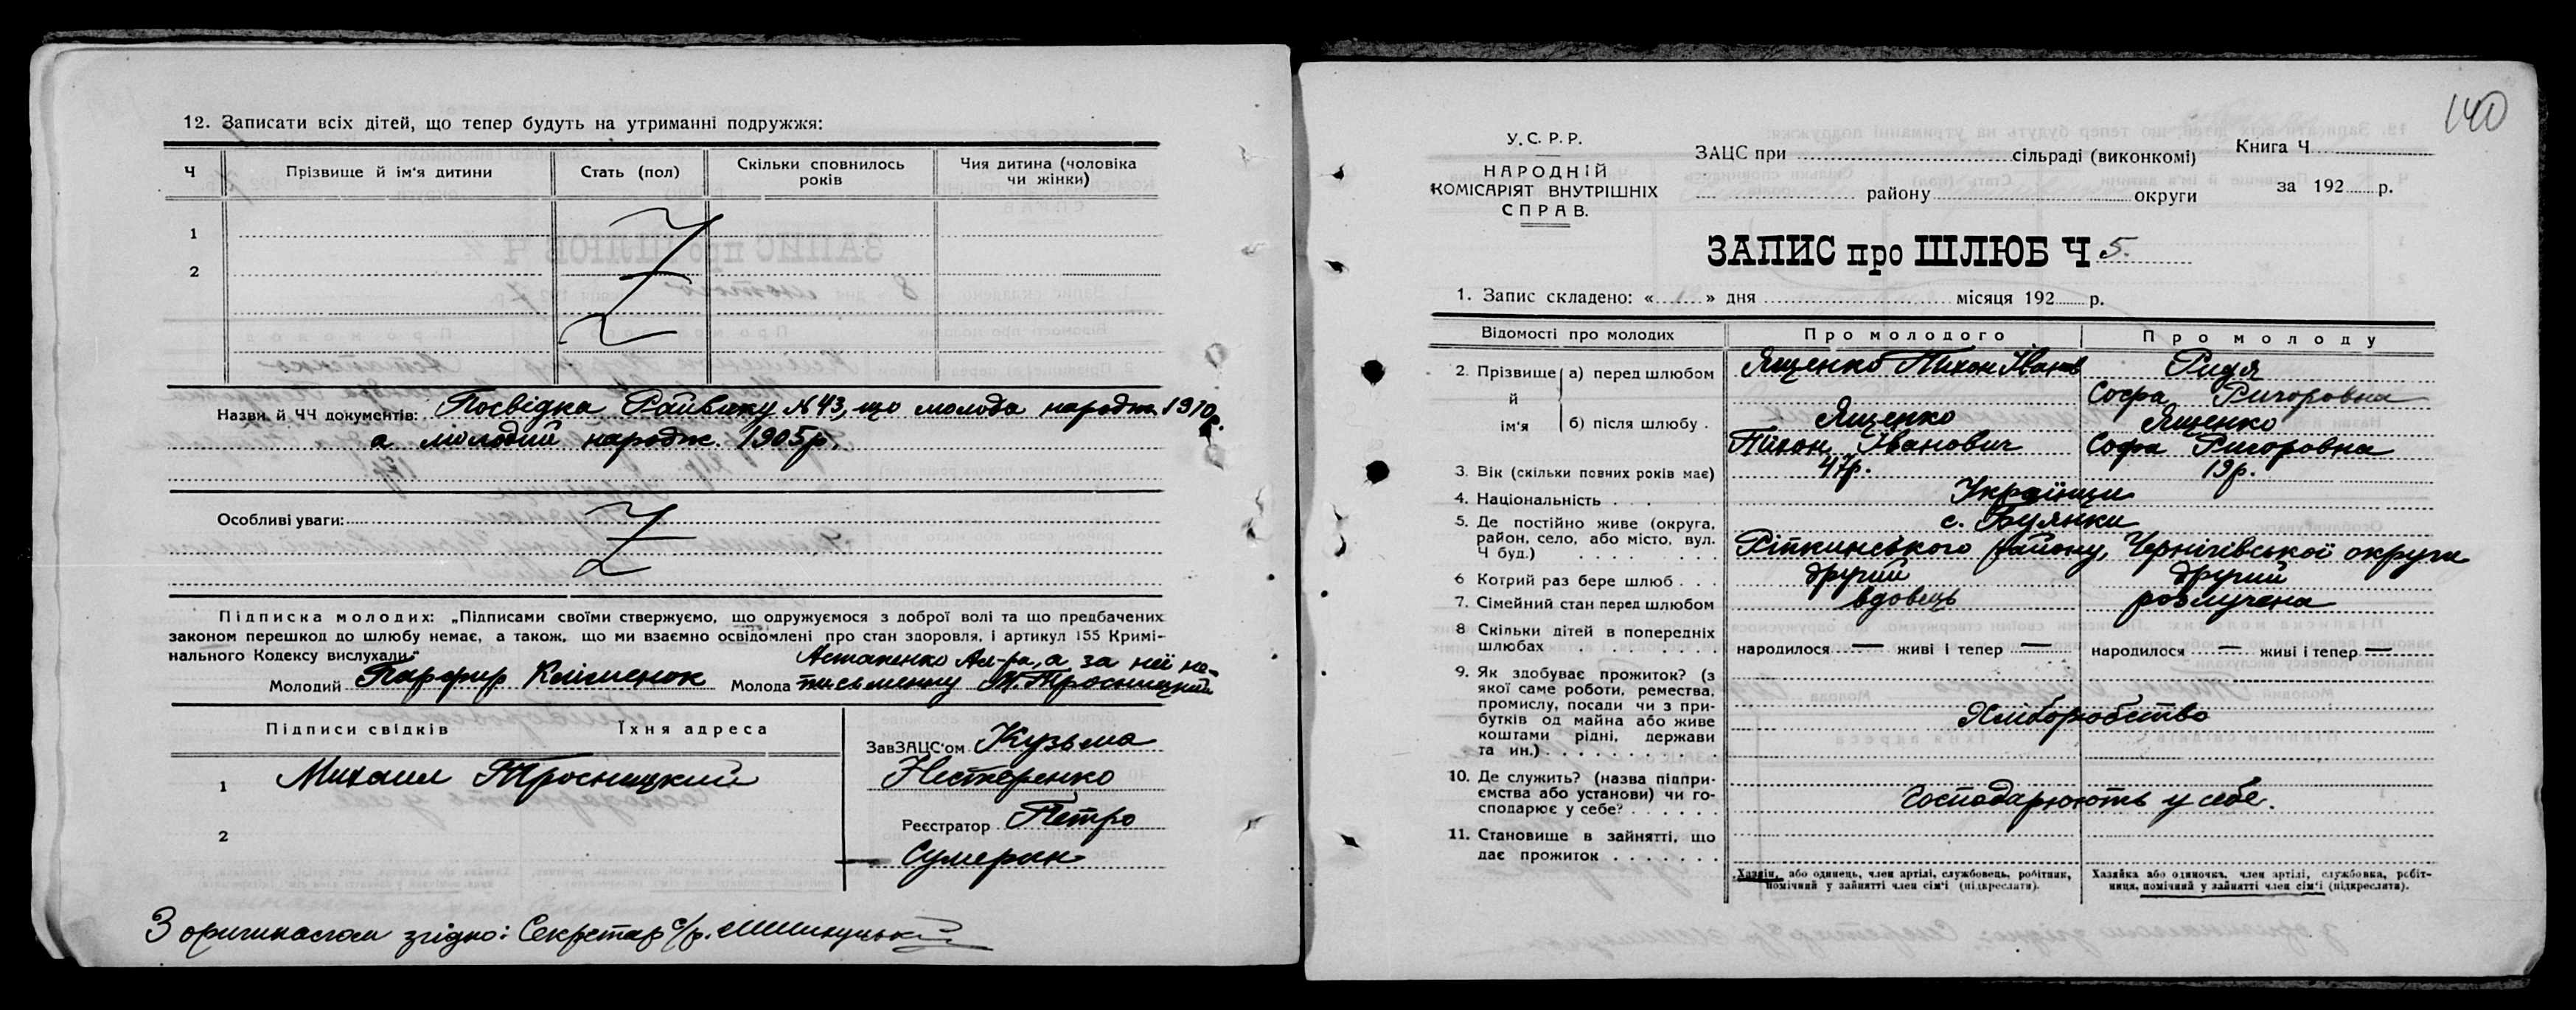 12. Записати всіх дітей, що тепер будуть на утриманні подружжя:
Ч
Прізвище й ім'я дитини
Стать (пол)
Скільки сповнилось років
Чия дитина (чоловіка чи жінки)
1
2
Z
Назви й ЧЧ документів: Посвідка Райвику № 43, що молода народж. 1910 р.
а молодий народж. 1905 р.
Особливі уваги:
Z
Підписка молодих: „Підписами своїми ствержуємо, що одружуємося з доброї волі та що предбачених
законом перешкод до шлюбу немає, а також, що ми взаємно освідомлені про стан здоровля, і артикул 155 Кримі-
нального Кодексу вислухали."
Астапенко Ал-ра, а за неї не-
Молодий Парфир Клименок Молода письменну М. Тросницкий
Підписи свідків
Їхня адреса
1 Михаил Тросницкий
2
ЗавЗАЦС'ом Кузьма
Нестеренко
Реєстратор Петро
Сумерак
З оригиналом згідно: Секретар с/р.
140
У.С.Р.Р.
НАРОДНІЙ
КОМІСАРІЯТ ВНУТРІШНІХ
СПРАВ.
ЗАЦС при сільраді (виконкомі)
району округи
Книга Ч
за 192 р.
ЗАПИС про ШЛЮБ Ч 5.
1. Запис складено: « » дня місяця 192 р.
Відомості про молодих
Про молодого
Про молоду
2. Прізвище й ім'я
а) перед шлюбом
Ященко Тихон Іванов
Ридя
Софа Григоровна
б) після шлюбу .
Ященко
Тихон Іванович
Ященко
Софа Григоровна
3. Вік (скільки повних років має)
47р.
19р.
4. Національність . . .
Українци
5. Де постійно живе (округа,
район, село, або місто, вул.
Ч буд.) . . . . . . .
с. Буянки
Ріпкинського району, Чернігівської округи
6 Котрий раз бере шлюб . . .
другий
другий
7. Сімейний стан перед шлюбом
вдовець
розлучена
8 Скільки дітей в попередніх
шлюбах . . . . . . .
народилося — живі і тепер —
народилося — живі і тепер —
9. Як здобуває прожиток? (з
якої саме роботи, ремества,
промислу, посади чи з при-
бутків од майна або живе
коштами рідні, держави
та ин.) . . . . . . . . .
Хліборобство
10. Де служить? (назва підпри-
ємства або установи) чи го-
сподарює у себе? . . . . . .
Господарюють у себе.
11. Становище в зайнятті, що
дає прожиток . . . . . . .
Хазяїн, або одинець, член артілі, службовець, робітник,
помічний у зайнятті член сім'ї (підкреслити).
Хазяйка або одиночка, член артілі, службовка, робіт-
ниця, помічний у зайнятті член сім'ї (підкреслити).